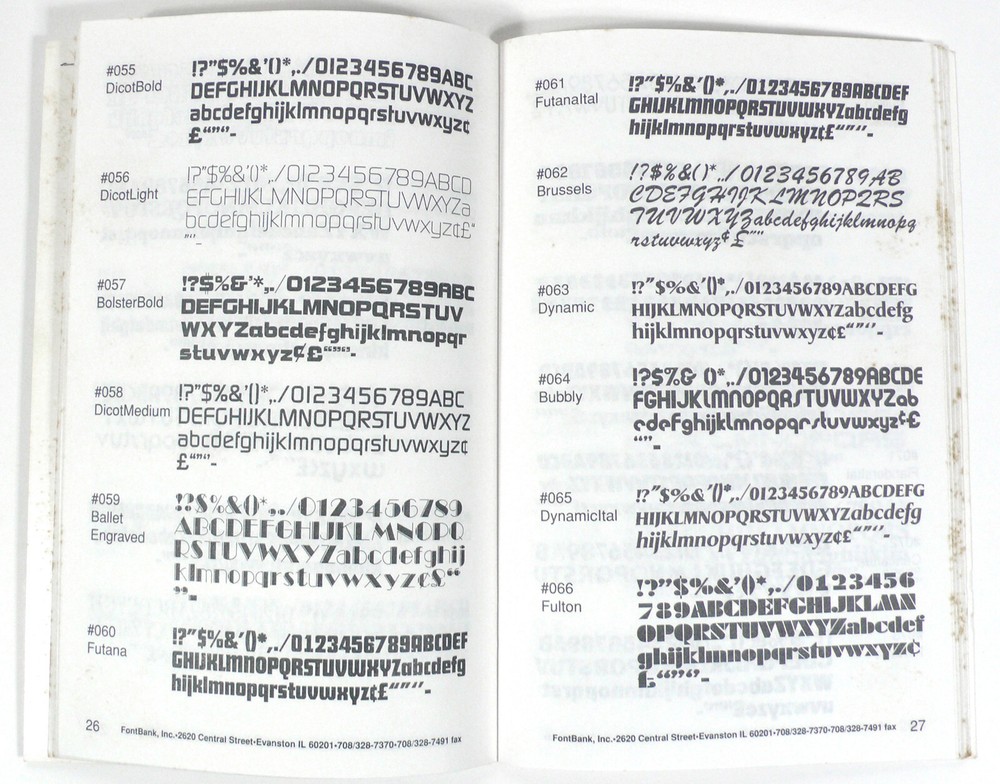 #055
DicotBold
!?"$%&'()*,./0123456789ABC
DEFGHIJKLMNOPQRSTUVWXYZ
abcdefghijklmnopqrstuvwxyz¢
£“”‘’-
#056
DicotLight
!?"$%&'()*,./0123456789ABCD
EFGHIJKLMNOPQRSTUVWXYZa
bcdefghijklmnopqrstuvwxyz¢£“
”‘’-
#057
BolsterBold
!?$%&'*,./0123456789ABC
DEFGHIJKLMNOPQRSTUV
WXYZabcdefghijklmnopqr
stuvwxyz¢£“”‘’-
#058
DicotMedium
!?"$%&'()*,./0123456789ABC
DEFGHIJKLMNOPQRSTUVWXYZ
abcdefghijklmnopqrstuvwxyz¢
£“”‘’-
#059
Ballet
Engraved
!?$%&()*,./0123456789
ABCDEFGHIJKLMNOPQ
RSTUVWXYZabcdefghij
klmnopqrstuvwxyz¢£“
”-
#060
Futana
!?"$%&'()*,./0123456789ABCDEF
GHIJKLMNOPQRSTUVWXYZabcdefg
hijklmnopqrstuvwxyz¢£“”‘’-
26
FontBank, Inc.•2620 Central Street•Evanston IL 60201•708/328-7370•708/328-7491 fax
#061
FutanaItal
!?"$%&'()*,./0123456789ABCDEF
GHIJKLMNOPQRSTUVWXYZabcdefg
hijklmnopqrstuvwxyz¢£“”‘’-
#062
Brussels
!?$%&()*,./0123456789AB
CDEFGHIJKLMNOPQRS
TUVWXYZabcdefghijklmnopq
rstuvwxyz¢£“”
#063
Dynamic
!?"$%&'()*,./0123456789ABCDEFG
HIJKLMNOPQRSTUVWXYZabcdefg
hijklmnopqrstuvwxyz¢£“”‘’-
#064
Bubbly
!?$%& ()*,./0123456789ABCDE
FGHIJKLMNOPQRSTUVWXYZab
cdefghijklmnopqrstuvwxyz¢£
“”-
#065
DynamicItal
!?"$%&'()*,./0123456789ABCDEFG
HIJKLMNOPQRSTUVWXYZabcdefg
hijklmnopqrstuvwxyz¢£“”‘’-
#066
Fulton
!?"$%&'()*,./0123456
789ABCDEFGHIJKLMN
OPQRSTUVWXYZabcdef
ghijklmnopqrstuvwxyz¢
£“”‘’-
FontBank, Inc.•2620 Central Street•Evanston IL 60201•708/328-7370•708/328-7491 fax
27